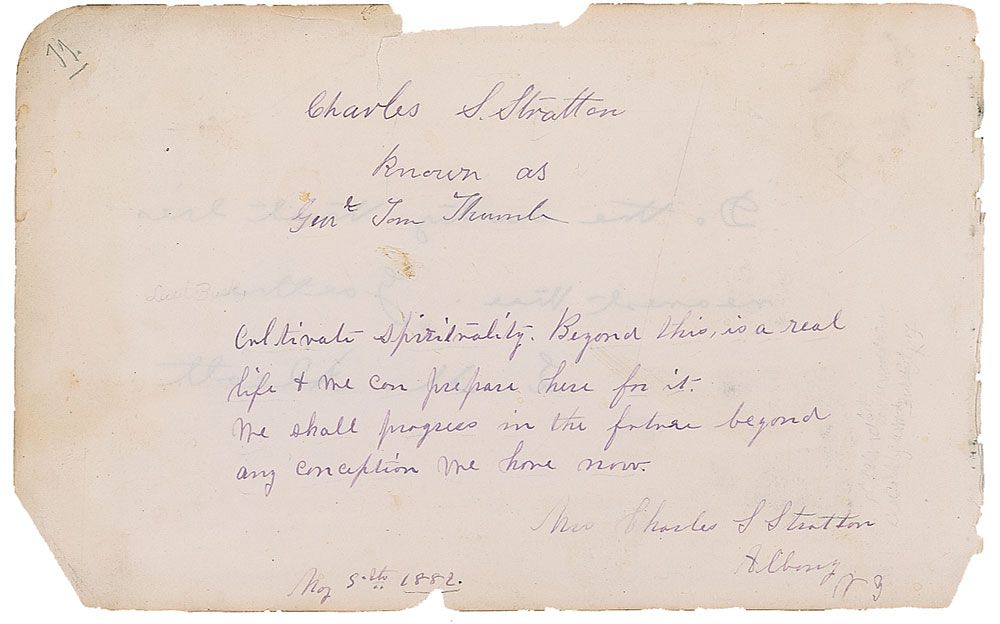 Charles S. Stratton
Known as
Genl Tom Thumb
Cultivate spirituality. Beyond this, is a real
life & we can prepare here for it.
We shall progress in the future beyond
any conception we have now.
Mrs Charles S Stratton
Albany
N Y
1882.